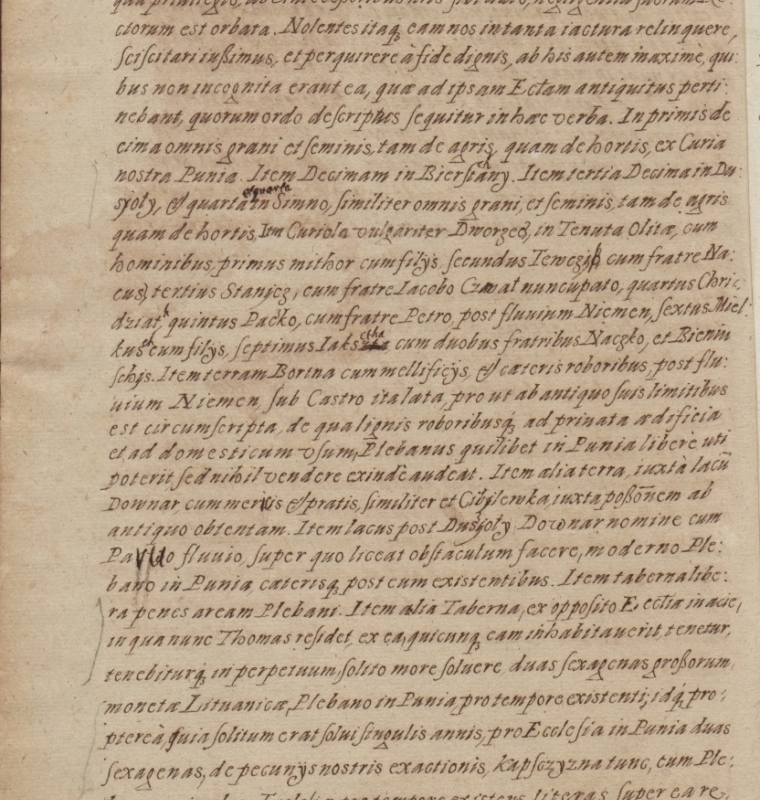 ctorum est orbata. Nolentes itaq, eam nos in tanta iactura relinquere,
sciscitari iussimus, et perquirere à fide dignis, ab his autem maxime, qui:
bus non incognita erant ea, quæ ad ipsam Ectam antiquitus perti:
nebant, quorum ordo descriptus sequitur in hæc verba. In primis de
cima omnis grani et seminis, tam de agris, quam de hortis, ex Curia
nostra Punia. Item Decimam in Biersťany. Item tertia Decima in Du:
sioly, & quarta in Simno, similiter omnis grani, et seminis, tam de agris
quam de hortis, Itm Curiola vulgariter Dworzec, in Tenuta Olitæ, cum
hominibus, primus mithor cum filijs secundus cum fratre Na:
cus, tertius Stanieg, cum fratre Iacobo nuncupato, quartus Chri:
dziath, quintus Packo, cum fratre Petro, post fluvium Niemen, sextus Miel:
kush cum filijs, septimus cum duobus fratribus Naczko, et Bieniu
schijs. Item terram Bortna cum mellificijs, & cæteris roboribus, post flu:
uium Niemen, sub Castro ita lata, prout ab antiquo suis limitibus
est circumscripta, de qua lignis roboribusq, ad priuata ædificia
et ad domesticum vsum, Plebanus quilibet in Punia liberè uti
poterit sed nihil vendere exindè audeat. Item alia terra, iuxtà lacū
Downar, cum mericis & pratis, similiter et Cibilewka, iuxta poßoñem ab
antiquo obtentam. Item lacus post Dusioly Downar nomine cum
fluvio, super quo liceat obstaculum facere, moderno Ple:
bano in Punia, cæterisq, post eum existentibus. Item taberna libe:
ra penes aream Plebani. Item alia Taberna, ex opposito Ecctiæ in acie,
in qua nunc Thomas residet, ex ea, quicunq, eam inhabitauerit, tenetur,
tenebiturq, in perpetuum, solito more soluere duas sexagenas großorum
monetæ Lituanicæ, Plebano in Punia pro tempore existenti; idq, pro:
ptereà, quia solitum erat solui singulis annis, pro Ecclesia in Punia duas
sexagenas, de pecunijs nostris exactionis, kapsczyzna tunc, cum Ple: